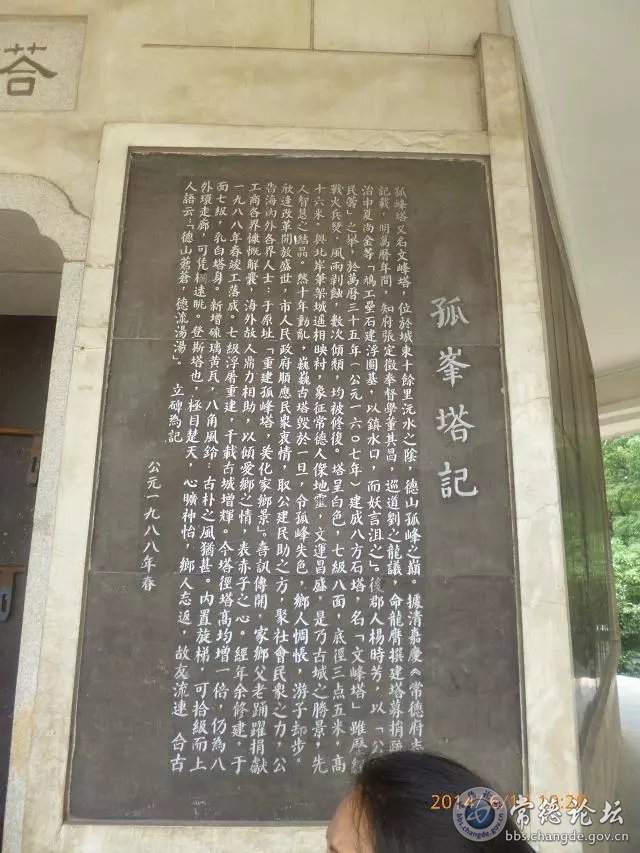 塔
孤峯塔記
孤峰塔又名文峰塔，位於城東十餘里沅水之陰，德山孤峰之巔。據清嘉慶《常德府志》
記載，明萬曆年間，知府張定徵奉督學董其昌，巡道劉之龍議，命龍膺撰建塔募捐疏，
治中夏尚金等「鳩工壘石建浮圖基，以鎮水口，而妖言沮之」。後郡人楊時芳，以「公
民舊」之舉，於萬曆三十五年（公元一六〇七年）建成八方石塔，名「文峰塔」雖歷經
戰火兵燹，風雨剥蝕，數次傾頹，均被修復。塔呈白色，七級八面，底徑三点五米，高
十六米。與北岸筆架城遥相映衬，象征常德人傑地靈，文運昌盛，是乃古城之勝景，先
人智慧之结晶。然十年動亂，巍巍古塔毀於一旦，令孤峰失色，鄉人惆悵，游子却步。
欣逢改革開放盛世，市人民政府順應民衆衷情，取公建民助之方，聚社會民衆之力，公
告海内外各界人士，于原址「重建孤峰塔，美化家鄉景」。喜訊傳開，家鄉父老踴躍捐獻
工商各界慷慨解囊，海外故人鼎力相助，以傾愛鄉之情，表赤子之心。經年余修建，于
一九八八年春竣工落成。七級浮屠重建，千載古城增輝。今塔徑塔高均增一倍，仍為八
面七級，乳白塔身。新增硫璃黄瓦，八角風鈴；古朴之風猶甚。内置旋梯，可拾級而上
外環走廊，可凭栏遠眺。登斯塔也，極目楚天，心曠神怡，鄉人忘返，故友流連 合古
人語云：「德山蒼蒼，德流湯湯」。 立碑為記
公元一九八八年春
2014/6/1 10:20
常德论坛
bbs.changde.gov.cn